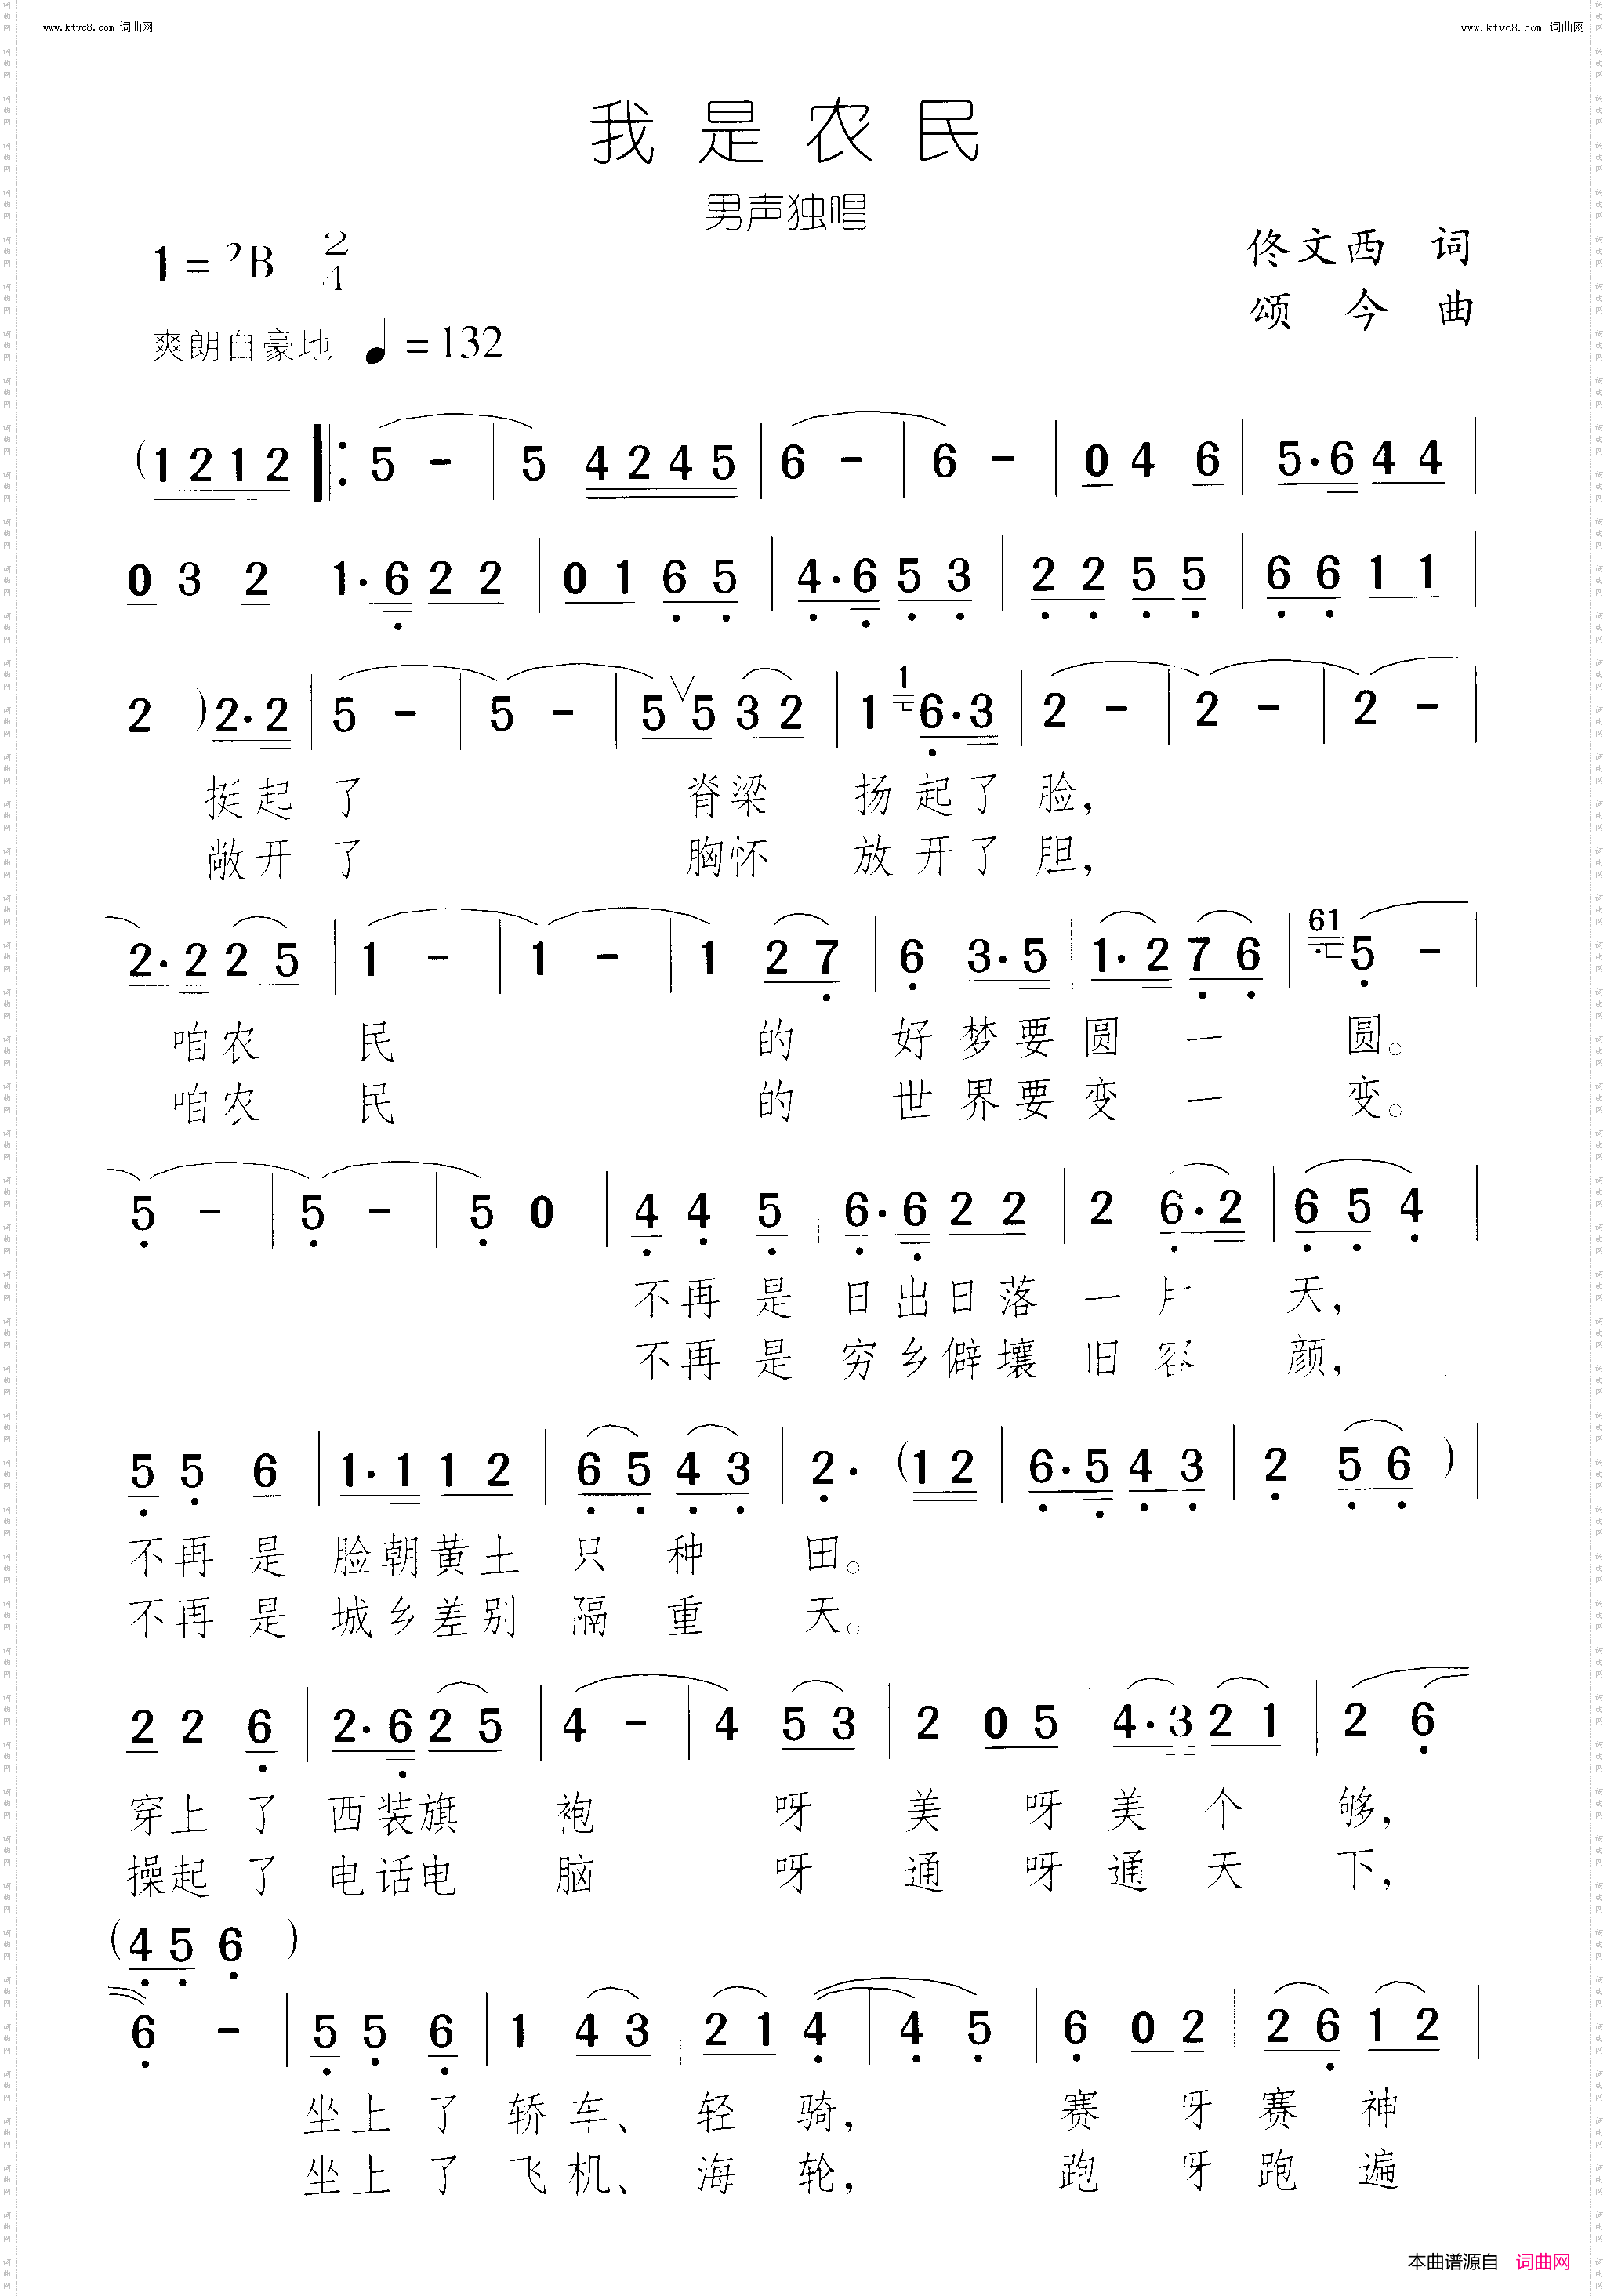 www.ktvc8.com 词曲网
www.ktvc8.com 词曲网
我是农民
男声独唱
1=♭B 2/4
佟文西 词
颂今 曲
爽朗自豪地 ♩=132
(1 2 1 2 ‖: 5 - | 5 4 2 4 5 | 6 - | 6 - | 0 4 6 | 5·6 4 4 |
0 3 2 | 1·6 2 2 | 0 1 6 5 | 4·6 5 3 | 2 2 5 5 | 6 6 1 1 |
2 ) 2·2 | 5 - | 5 - | 5 5 3 2 | 1 1 6·3 | 2 - | 2 - | 2 - |
挺起了 脊梁 扬起了脸,
敞开了 胸怀 放开了胆,
2·2 2 5 | 1 - | 1 - | 1 2 7 | 6 3·5 | 1·2 7 6 | 61 5 - |
咱农民 的好梦要圆一圆。
咱农民 的世界要变一变。
5 - | 5 - | 5 0 | 4 4 5 | 6·6 2 2 | 2 6·2 | 6 5 4 |
不再是日出日落一片天,
不再是穷乡僻壤旧容颜,
5 5 6 | 1·1 1 2 | 6 5 4 3 | 2· (1 2 | 6·5 4 3 | 2 5 6 ) |
不再是脸朝黄土只种田。
不再是城乡差别隔重天。
2 2 6 | 2·6 2 5 | 4 - | 4 5 3 | 2 0 5 | 4·3 2 1 | 2 6 |
穿上了西装旗袍 呀美呀美个够,
操起了电话电脑 呀通呀通天下,
(4 5 6 )
6 - | 5 5 6 | 1 4 3 | 2 1 4 | 4 5 | 6 0 2 | 2 6 1 2 |
坐上了轿车、轻骑, 赛呀赛神
坐上了飞机、海轮, 跑呀跑遍
本曲谱源自 词曲网